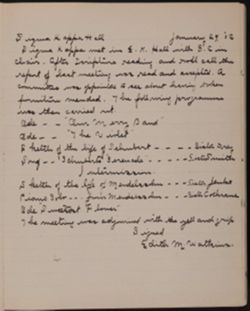 Sigma Kappa Hall January 29 '12
Sigma Kappa met in S. K. Hall with S. C in
chair. After Scripture reading and roll call the
report of last meeting was read and accepted. A
committee was appointed to see about having other
furniture mended. The following programme
was then carried out
Ode -- "Our Merry Band"
Ode -- "The Violet"
A sketch of the life of Schubert --- Sister
Song -- "Schubert's Serenade" --- Sister Smith
Intermission
Sketch of the life of Mendelssohn --- Sister
Piano Solo -- from Mendelssohn --- Sister Cochrane
Ode Sweetest Flower
The meeting was adjourned with the yell and grip
Signed
Edith M. Watkins